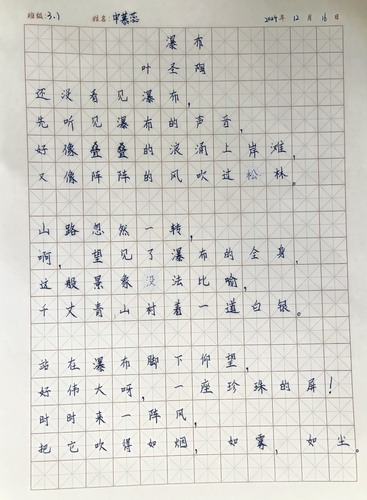 班级:3.1 姓名:申慕蕊 2024年 12月 16日
瀑布
叶圣陶
还没看见瀑布,
先听见瀑布的声音,
好像叠叠的浪涌上岸滩,
又像阵阵的风吹过松林。
山路忽然一转,
啊,望见了瀑布的全身,
这般景象没法比喻,
千丈青山衬着一道白银。
站在瀑布脚下仰望,
好伟大呀,一座珍珠的屏!
时时来一阵风,
把它吹得如烟,如雾,如尘。